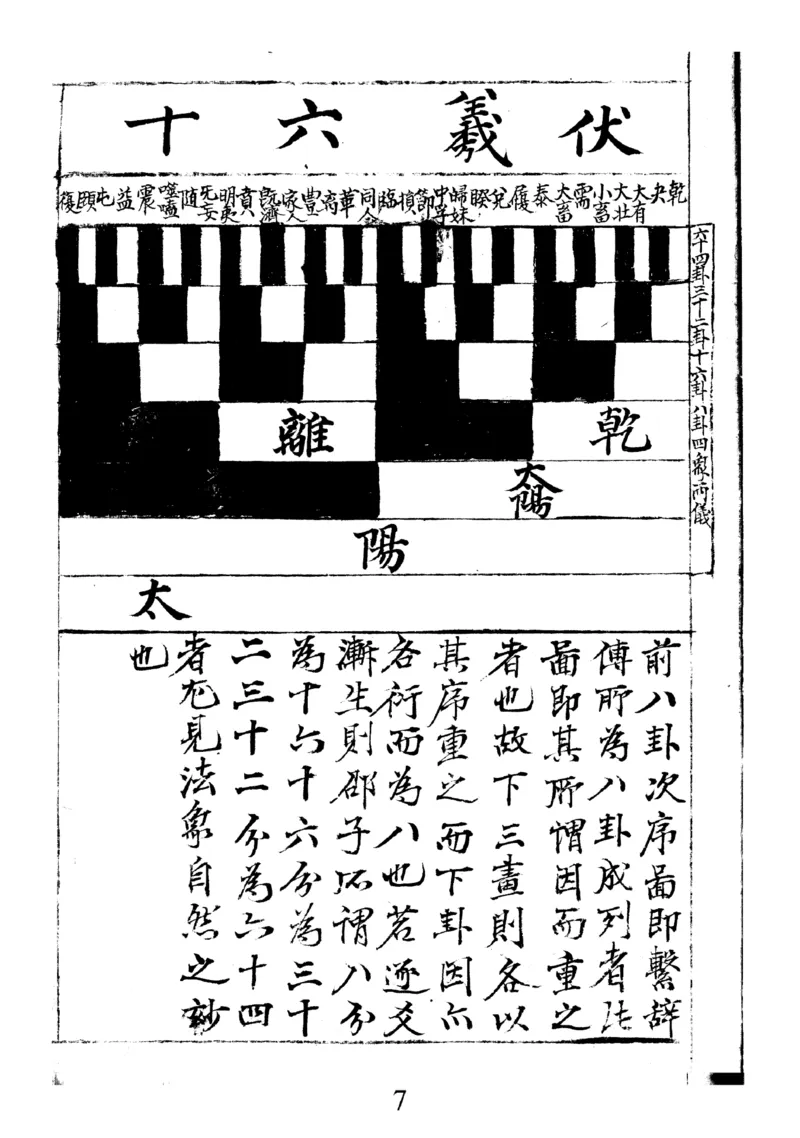 伏羲六十
乾 夬 大有 大壯 小畜 需 大畜 泰 履 兌 睽 歸妹 中孚 節 損 臨 同人 革 离 豐 家人 既濟 賁 明夷 无妄 随 噬嗑 震 益 屯 頤 復
六十四卦三十二卦十六卦八卦四象両儀
乾 離
太陽
陽
太
前八卦次序啚即繫辞
傳所為八卦成列者此
啚即其所謂因而重之
者也故下三畫則各以
其序重之而下卦因亦
各衍而為八也若逐爻
漸生則邵子所謂八分
為十六十六分為三十
二三十二分為六十四
者尤見法象自然之妙
也
7